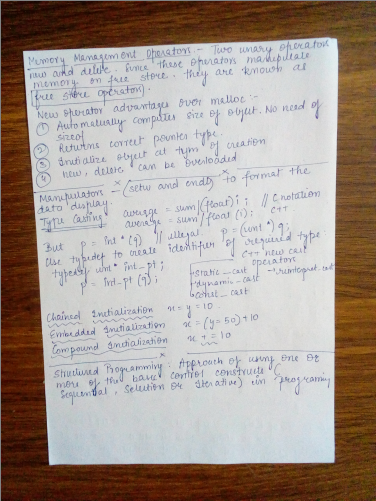 Memory Management Operators :- Two unary operators
new and delete. Since these operators manipulate
memory on free store, they are known as
free store operators.
New operator advantages over malloc :-
① Automatically computes size of object. No need of
sizeof
② Returns correct pointer type.
③ Initialize object at tym of creation
④ New, delete can be overloaded
Manipulators - (setw and endl) to format the
data display.
Type Casting average = sum/(float)i ; // C notation
average = sum/float(i) ; C++
But p = int*(q) // illegal p = (int*)q ;
Use typedef to create identifier of required type
typedef int* int_pt ; C++ new cast
p = int_pt(q) ; operators
static_cast
dynamic_cast
const_cast
Chained Initialization x = y = 10
Embedded Initialization x = (y=50)+10
Compound Initialization x += 10
Structured Programming : Approach of using one or
more of the basic control constructs (
Sequential, Selection or Iterative) in programing